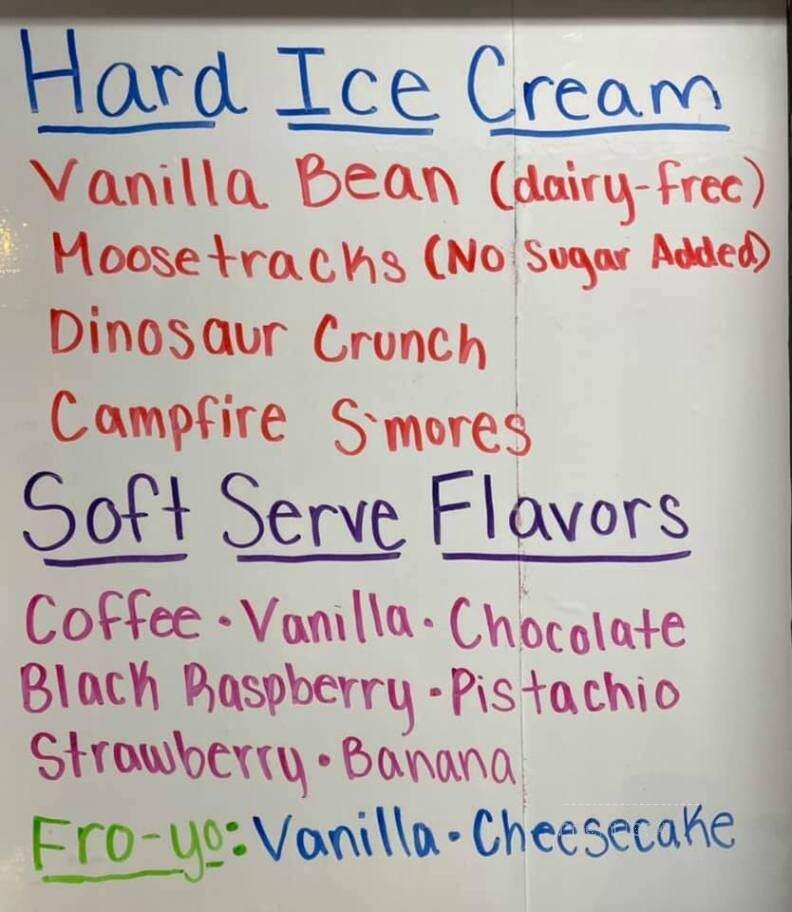 Hard Ice Cream
Vanilla Bean (dairy-free)
Moosetracks (No Sugar Added)
Dinosaur Crunch
Campfire S'mores
Soft Serve Flavors
Coffee • Vanilla • Chocolate
Black Raspberry • Pistachio
Strawberry • Banana
Fro-yo: Vanilla • Cheesecake